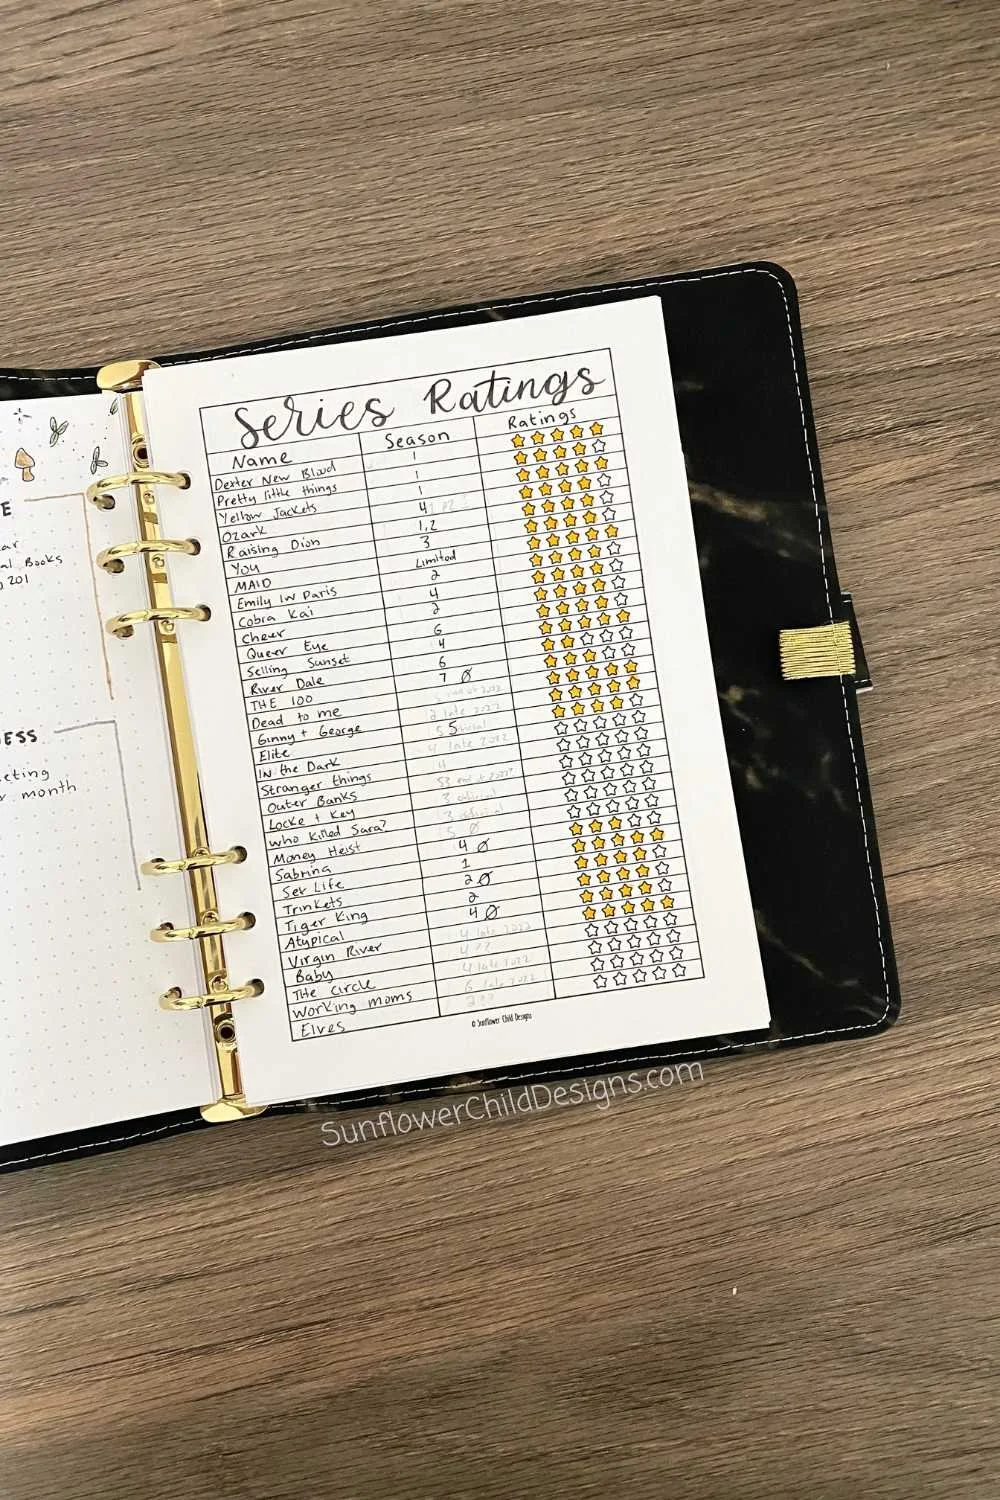 E
ar
al Books
201
ESS
eting
r month
Series Ratings
Name Season Ratings
Dexter New Blood 1
Pretty little things 1
Yellow Jackets 1
Ozark 4
Raising Dion 1,2
You 3
MAID Limited
Emily IN Paris 2
Cobra Kai 4
Cheer 2
Queer Eye 6
Selling Sunset 4
River Dale 6
THE 100 7 Ø
Dead to me
Ginny + George 2 late 2022
Elite 5
IN the Dark 4 late 2022
Stranger things 4
Outer Banks
Locke + Key 3 official
Who Killed Sara? 3 official
Money Heist 5 Ø
Sabrina 4 Ø
Sex Life 1
Trinkets 2 Ø
Tiger King 2
Atypical 4 Ø
Virgin River 4 late 2022
Baby 4 ??
THE Circle 4 late 2022
Working moms 6 late 2022
Elves
© Sunflower Child Designs
SunflowerChildDesigns.com